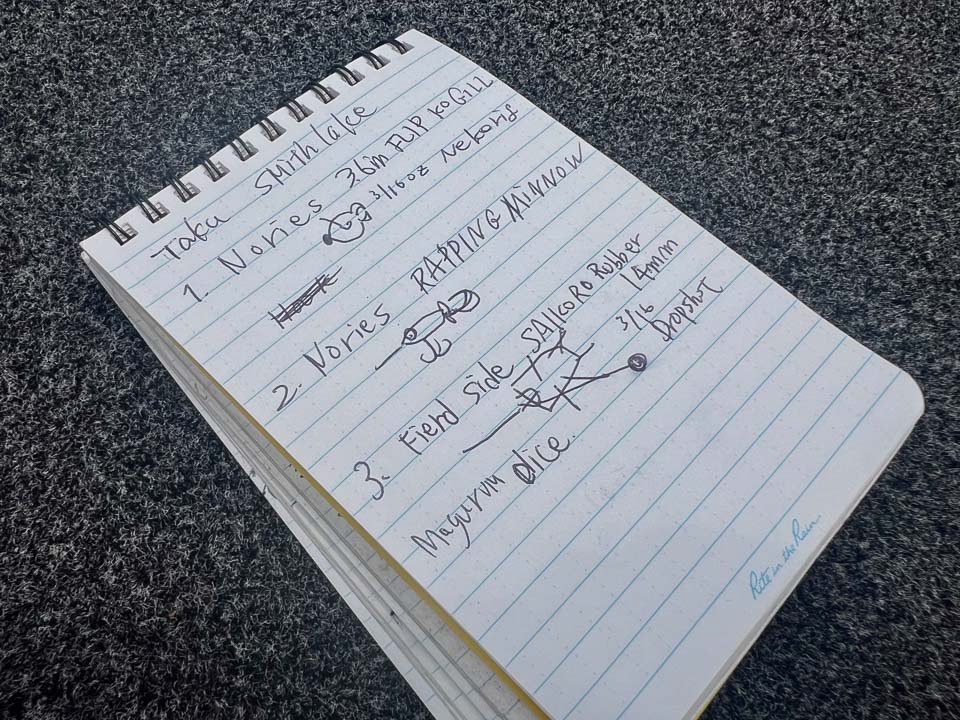 Taku Smith lake
1. Nories 3.6in FLIP KOGILL
3/16oz Nekorig
2. Nories RAPPING MINNOW
3. Fierd side SAIKORO Rubber
14mm
3/16
Dropshot
Magurum dice.
Rite in the Rain